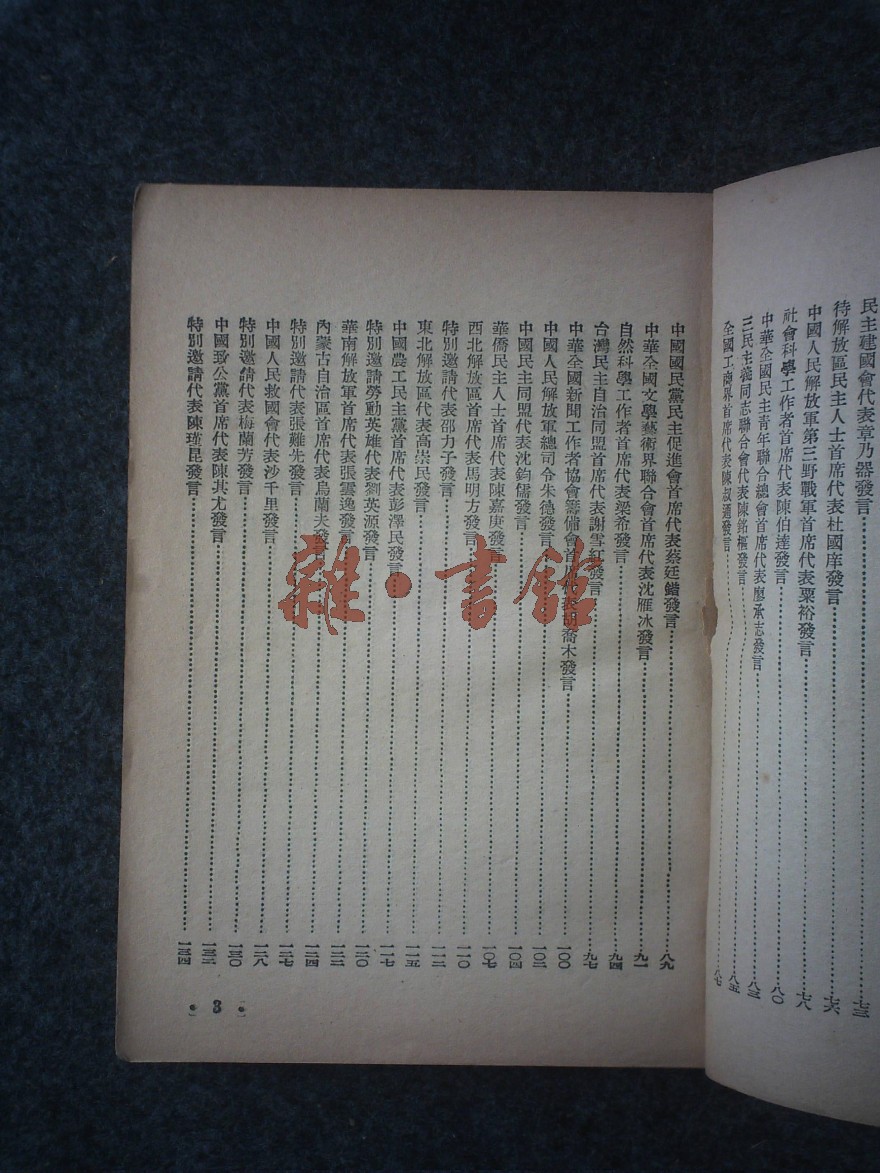 民主建國會代表章乃器發言……七三
待解放區民主人士首席代表杜國庠發言……七六
中國人民解放軍第三野戰軍首席代表粟裕發言……七八
社會科學工作者首席代表陳伯達發言……八〇
中華全國民主青年聯合總會首席代表廖承志發言……八三
三民主義同志聯合會代表陳銘樞發言……八五
全國工商界首席代表陳叔通發言……八七
中國國民黨民主促進會首席代表蔡廷鍇發言……八九
中華全國文學藝術界聯合會首席代表沈雁冰發言……九一
自然科學工作者首席代表梁希發言……九四
台灣民主自治同盟首席代表謝雪紅發言……九七
中華全國新聞工作者協會籌備會首席代表胡喬木發言……一〇〇
中國人民解放軍總司令朱德發言……一〇二
中國民主同盟代表沈鈞儒發言……一〇四
華僑民主人士首席代表陳嘉庚發言……一〇七
西北解放區首席代表馬明方發言……一一〇
特別邀請代表邵力子發言……一一二
東北解放區代表高崇民發言……一一五
中國農工民主黨首席代表彭澤民發言……一一七
特別邀請勞動英雄代表劉英源發言……一二〇
華南解放軍首席代表張雲逸發言……一二二
內蒙古自治區首席代表烏蘭夫發言……一二四
特別邀請代表張難先發言……一二七
中國人民救國會代表沙千里發言……一二八
特別邀請代表梅蘭芳發言……一三〇
中國致公黨首席代表陳其尤發言……一三二
特別邀請代表陳瑾昆發言……一三四
• 3 •
雜·書館